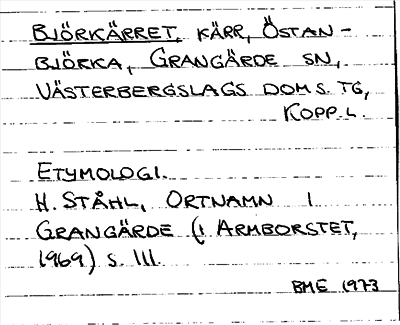 BJÖRKÄRRET, KÄRR, ÖSTAN-
BJÖRKA, GRANGÄRDE SN,
VÄSTERBERGSLAGS DOMS. TG,
KOPP. L.
ETYMOLOGI.
H. STÅHL, ORTNAMN I
GRANGÄRDE (I ARMBORSTET,
1969) S. 111.
BME 1973